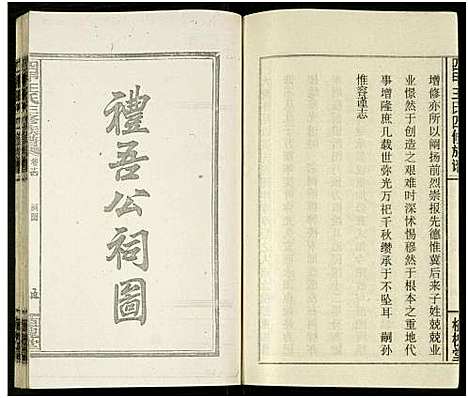 四甲王氏四修族譜
增修亦所以阐扬前烈崇报先德惟冀后来子姓兢兢业
业憬然于创造之艰难时深怵惕穆然于根本之重地代
事增隆庶几载世弥光万祀千秋缵承于不坠耳　嗣孙
惟容谨志
禮吾公祠圖